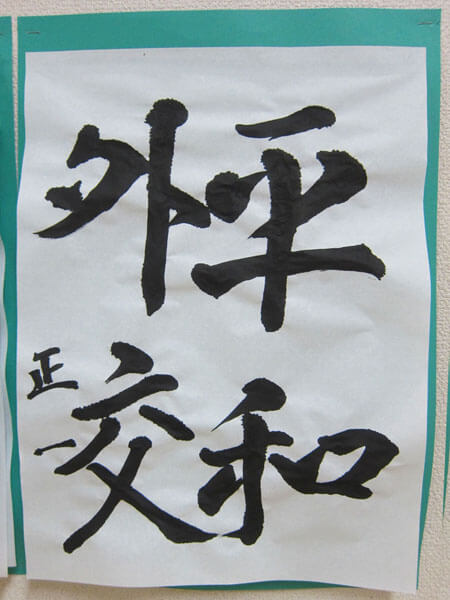 平和
外交
正一